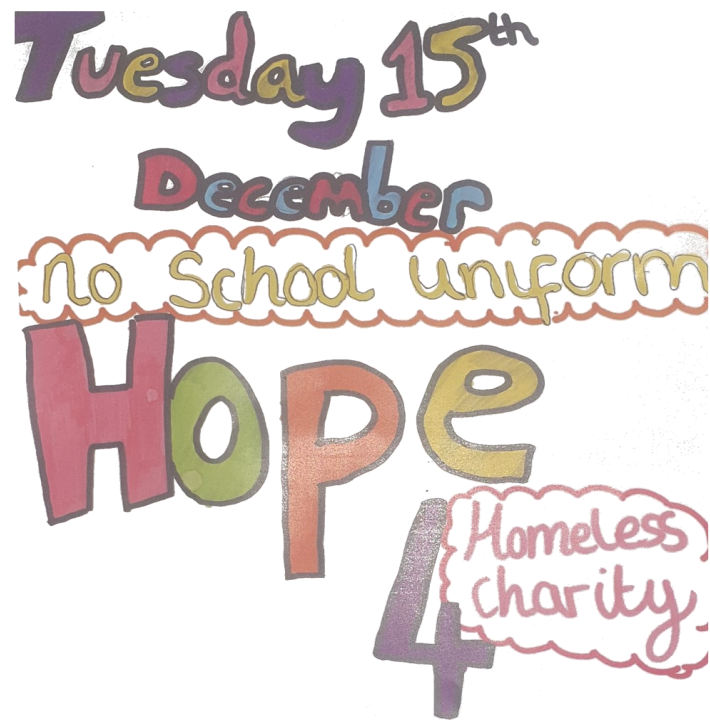 Tuesday 15th
December
no School uniform
Hope
4
Homeless
charity